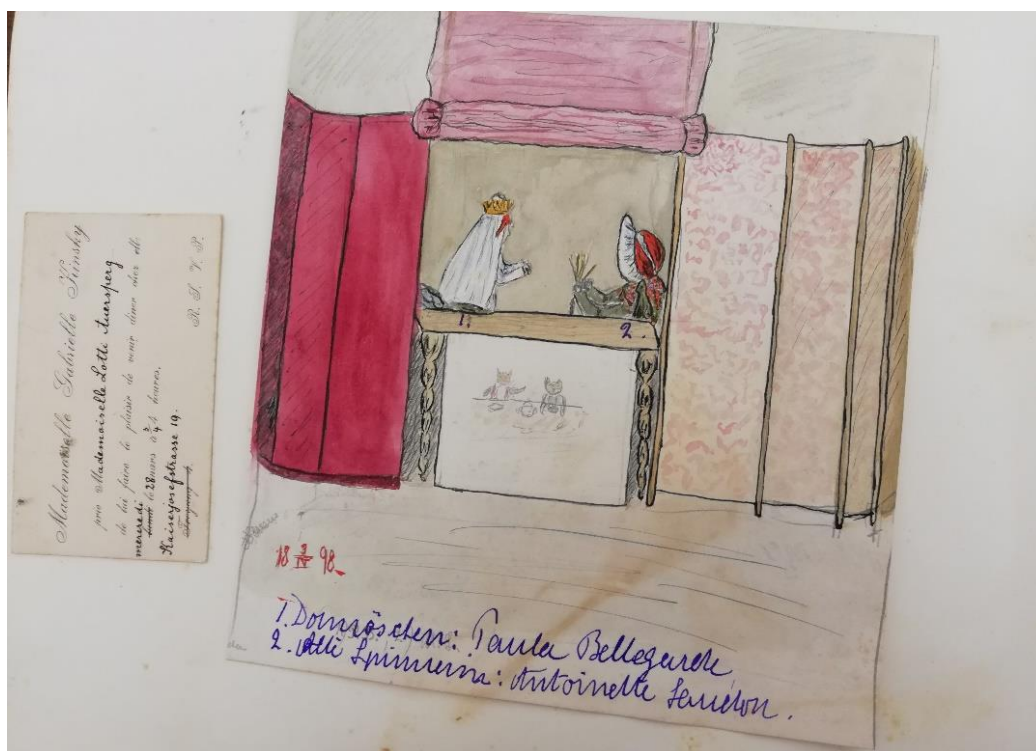 Mademoiselle Gabrielle Kinsky
prie Mademoiselle Lotti Auersperg
de lui faire le plaisir de venir dîner chez elle
mercredi le 28 mars à 3/4 4 heures.
Kaiserjosefstrasse 19.
R. S. V. P.
1.
2.
18 3/IV 98.
1. Dornröschen: Paula Bellegarde
2. Alte Spinnerin: Antoinette